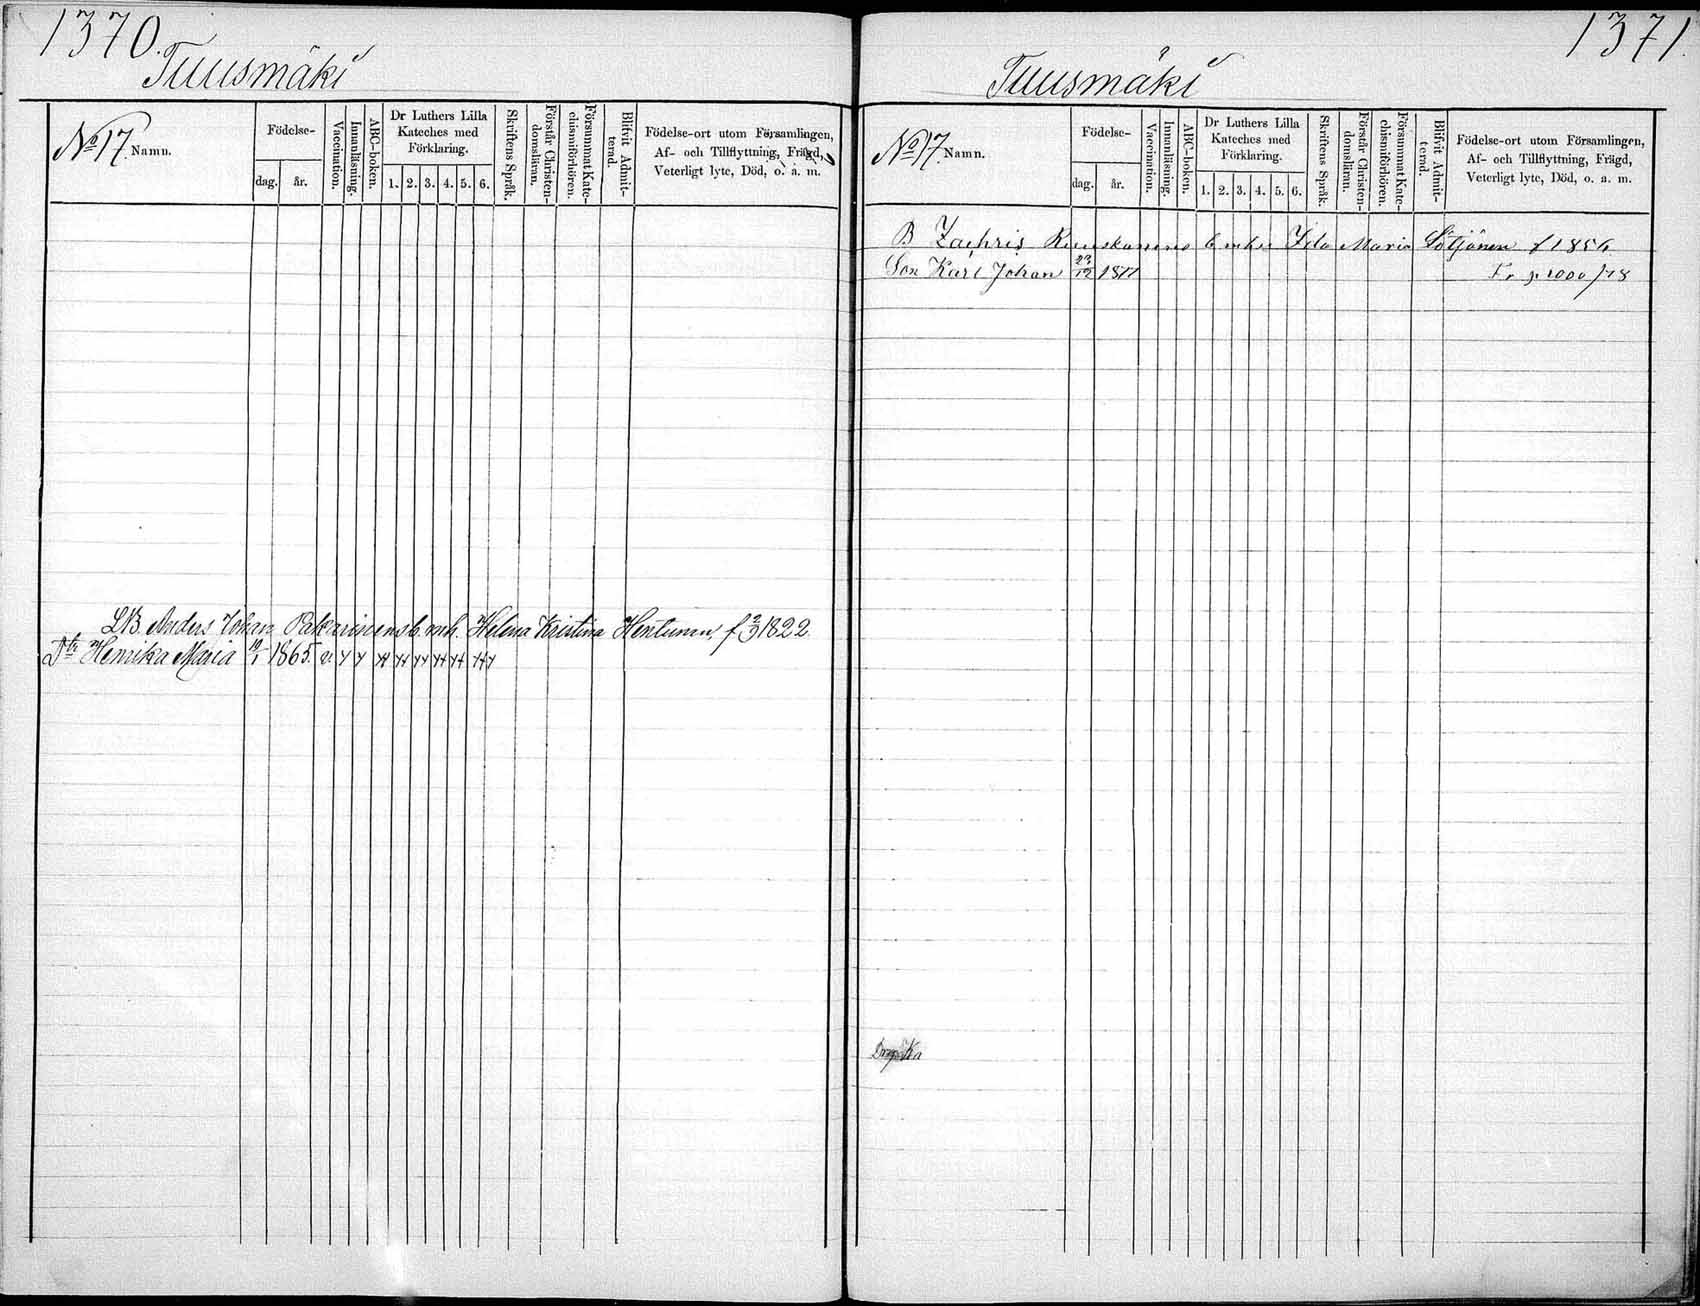 1370.
Tuusmäki
No 17 Namn.
Födelse-
dag.
år.
Vaccination.
Innanläsning.
ABC-boken.
Dr Luthers Lilla
Kateches med
Förklaring.
1. 2. 3. 4. 5. 6.
Skriftens Språk.
Förstår Christen-
domsläran.
Försummat Kate-
chismiförhören.
Blifvit Admit-
terad.
Födelse-ort utom Församlingen,
Af- och Tillflyttning, Frägd,
Veterligt lyte, Död, o. a. m.
LB. Anders Johan Pakarisens b. mh. Helena Kristina Hentunen f 2/9 1822.
Dtr Henrika Maria 19/1 1865.
1371.
Tuusmäki
No 17 Namn.
Födelse-
dag.
år.
Vaccination.
Innanläsning.
ABC-boken.
Dr Luthers Lilla
Kateches med
Förklaring.
1. 2. 3. 4. 5. 6.
Skriftens Språk.
Förstår Christen-
domsläran.
Försummat Kate-
chismiförhören.
Blifvit Admit-
terad.
Födelse-ort utom Församlingen,
Af- och Tillflyttning, Frägd,
Veterligt lyte, Död, o. a. m.
B Zachris Kuuskonens Ida Maria f 1856
Son Karl Johan 23/12 1877 Fr p 1000/78